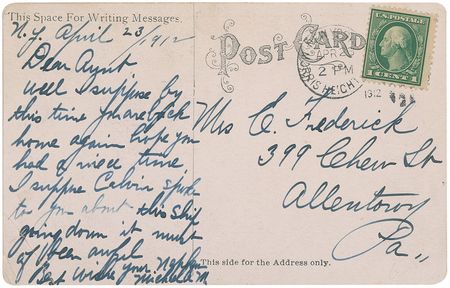 This Space For Writing Messages.
N.Y. April 23/1912
Dear Aunt
well I suppose by
this time you are back
home again hope you
had a nice time
I suppose Calvin spoke
to you about this ship
going down it must
of been awful
Best wishes your Nephew
Michael M
POST CARD
APR 2
2 PM
MORRIS HEIGHTS
1912
U.S. POSTAGE
1 CENT 1
Mrs C. Frederick
399 Chew St
Allentown
Pa.
This side for the Address only.